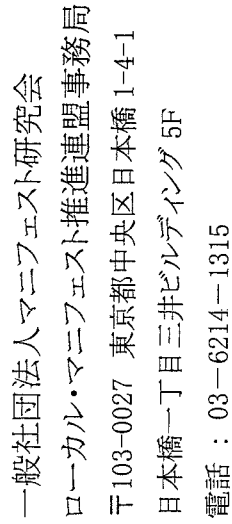 一般社団法人マニフェスト研究会
ローカル・マニフェスト推進連盟事務局
〒103-0027 東京都中央区日本橋1-4-1
日本橋一丁目三井ビルディング 5F
電話：03－6214－1315